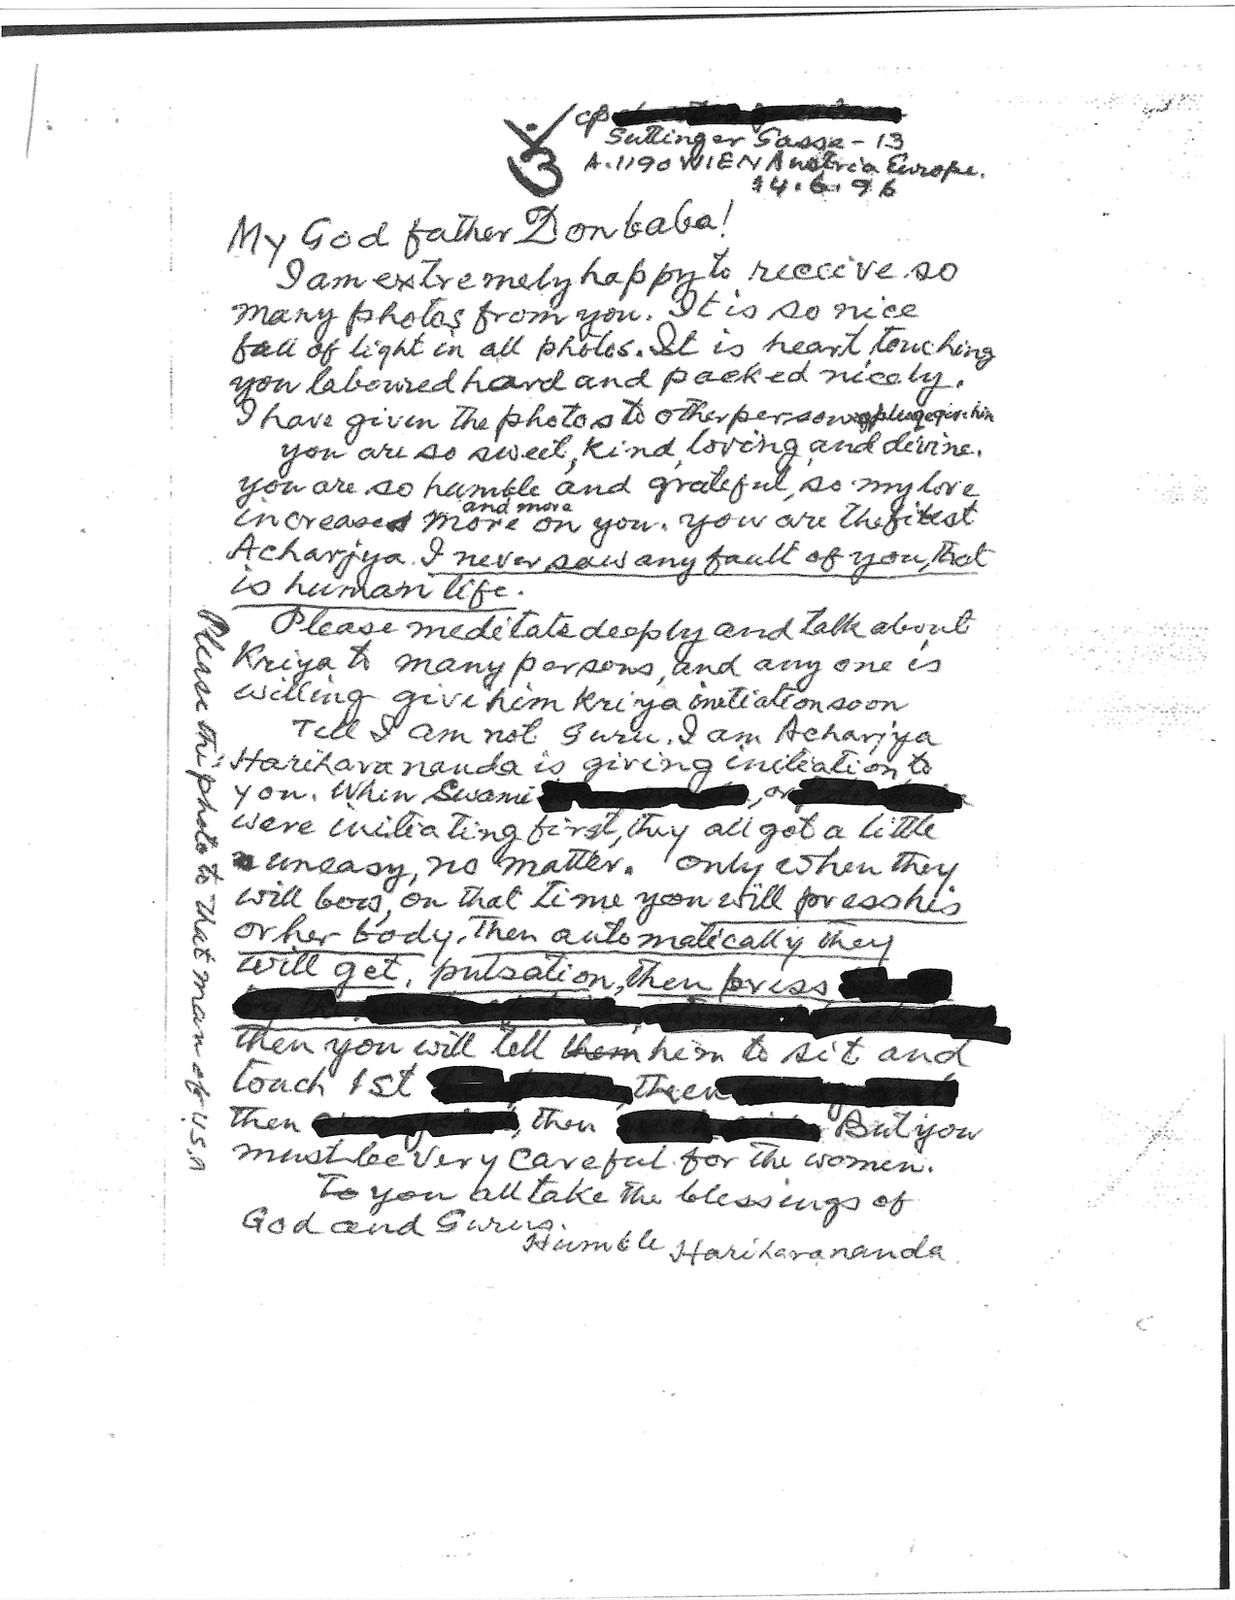 ॐ
c/o
Suttinger Gasse - 13
A. 1190 WIEN Austria Europe.
14.6.96
My God father Donbaba!
I am extremely happy to receive so
many photos from you. It is so nice
full of light in all photos. It is heart touching
you laboured hard and packed nicely.
I have given the photos to other persons please give him
you are so sweet, kind, loving and divine.
you are so humble and grateful, so my love
increased more and more on you. you are the fittest
Acharjya. I never saw any fault of you, that
is human life.
Please meditate deeply and talk about
Kriya to many persons, and any one is
willing give him Kriya initiation soon
Tell I am not Guru. I am Acharjya
Hariharananda is giving initiation to
you. When Swami , or
were initiating first, they all got a little
uneasy, no matter. only when they
will bow, on that time you will press his
or her body. Then automatically they
will get, pulsation, then press
then you will tell them him to sit and
touch 1st , then
then , then But you
must be very careful for the women.
To you all take the blessings of
God and Gurus.
Humble Hariharananda
Please this photo to that man of U.S.A